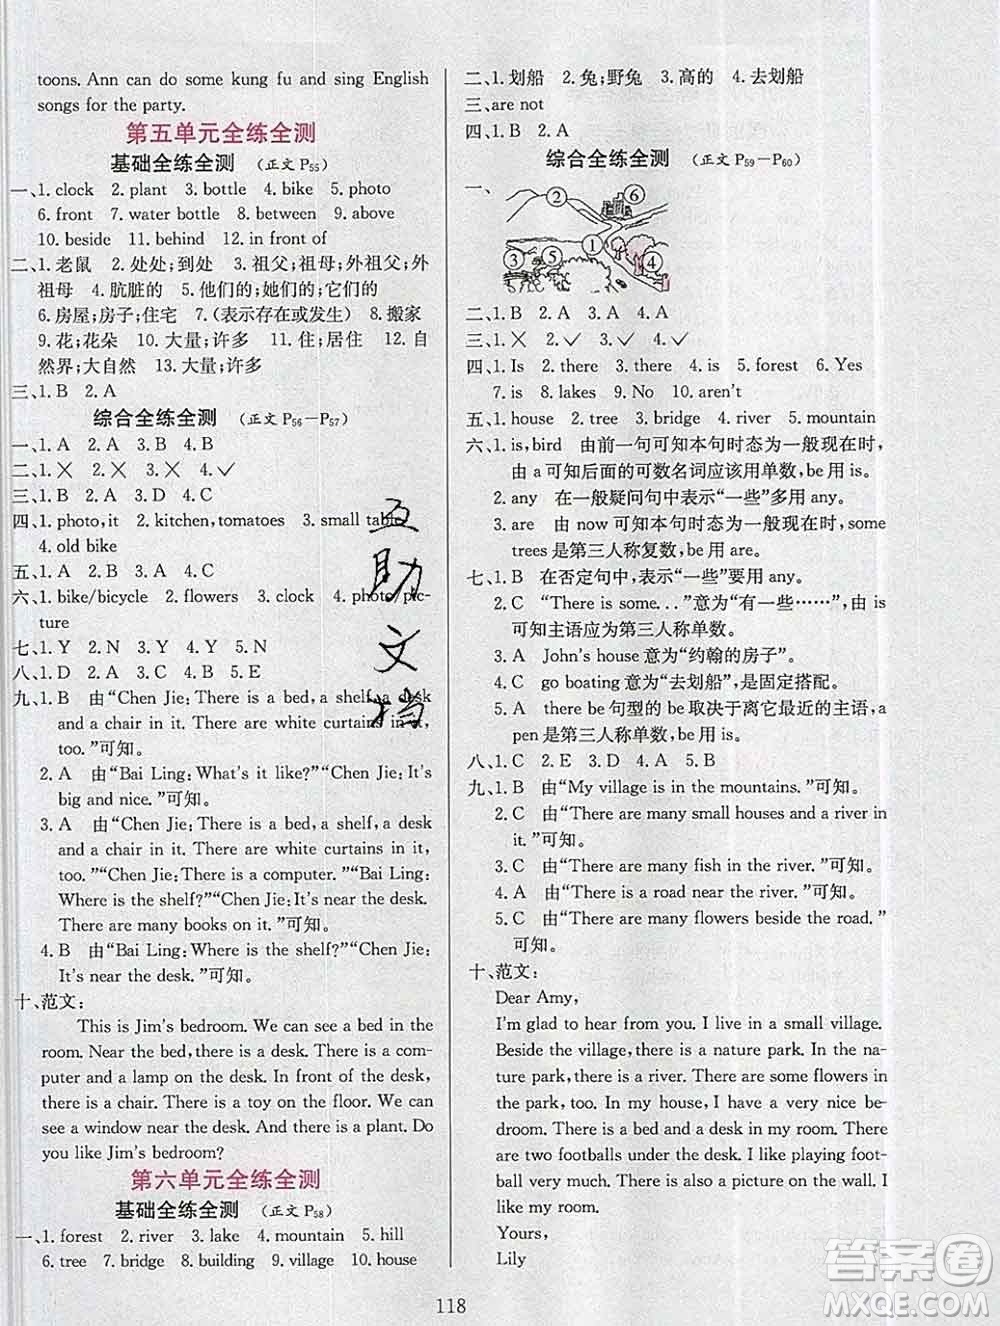 toons. Ann can do some kung fu and sing English
songs for the party.
第五单元全练全测
基础全练全测 (正文 P55)
一、1. clock 2. plant 3. bottle 4. bike 5. photo
6. front 7. water bottle 8. between 9. above
10. beside 11. behind 12. in front of
二、1. 老鼠 2. 处处;到处 3. 祖父;祖母;外祖父;外
祖母 4. 肮脏的 5. 他们的;她们的;它们的
6. 房屋;房子;住宅 7. (表示存在或发生) 8. 搬家
9. 花;花朵 10. 大量;许多 11. 住;居住 12. 自
然界;大自然 13. 大量;许多
三、1. B 2. A
综合全练全测 (正文 P56—P57)
一、1. A 2. A 3. B 4. B
二、1. ✕ 2. ✕ 3. ✕ 4. ✓
三、1. B 2. A 3. D 4. C
四、1. photo,it 2. kitchen,tomatoes 3. small table
4. old bike
五、1. A 2. B 3. A 4. C
六、1. bike/bicycle 2. flowers 3. clock 4. photo/pic-
ture
七、1. Y 2. N 3. Y 4. N 5. N
八、1. D 2. A 3. C 4. B 5. E
九、1. B 由“Chen Jie: There is a bed, a shelf, a desk
and a chair in it. There are white curtains in it,
too. ”可知。
2. A 由“Bai Ling: What's it like?”“Chen Jie: It's
big and nice. ”可知。
3. A 由“Chen Jie: There is a bed, a shelf, a desk
and a chair in it. There are white curtains in it,
too. ”“Chen Jie: There is a computer. ”“Bai Ling:
Where is the shelf?”“Chen Jie: It's near the desk.
There are many books on it”可知。
4. B 由“Bai Ling: Where is the shelf?”“Chen Jie:
It's near the desk. ”可知。
十、范文:
This is Jim's bedroom. We can see a bed in the
room. Near the bed, there is a desk. There is a com-
puter and a lamp on the desk. In front of the desk,
there is a chair. There is a toy on the floor. We can
see a window near the desk. And there is a plant. Do
you like Jim's bedroom?
第六单元全练全测
基础全练全测 (正文 P58)
一、1. forest 2. river 3. lake 4. mountain 5. hill
6. tree 7. bridge 8. building 9. village 10. house
二、1. 划船 2. 兔;野兔 3. 高的 4. 去划船
三、are not
四、1. B 2. A
综合全练全测 (正文 P59—P60)
一、
② ⑥
①
③ ⑤ ④
二、1. B 2. B 3. A 4. C
三、1. ✕ 2. ✓ 3. ✕ 4. ✓
四、1. Is 2. there 3. there 4. is 5. forest 6. Yes
7. is 8. lakes 9. No 10. aren't
五、1. house 2. tree 3. bridge 4. river 5. mountain
六、1. is,bird 由前一句可知本句时态为一般现在时,
由 a 可知后面的可数名词应该用单数,be 用 is。
2. any 在一般疑问句中表示“一些”多用 any。
3. are 由 now 可知本句时态为一般现在时,some
trees 是第三人称复数,be 用 are。
七、1. B 在否定句中,表示“一些”要用 any。
2. C “There is some. . . ”意为“有一些……”,由 is
可知主语应为第三人称单数。
3. A John's house 意为“约翰的房子”。
4. C go boating 意为“去划船”,是固定搭配。
5. A there be 句型的 be 取决于离它最近的主语,a
pen 是第三人称单数,be 用 is。
八、1. C 2. E 3. D 4. A 5. B
九、1. B 由“My village is in the mountains. ”可知。
2. C 由“There are many small houses and a river in
it. ”可知。
3. C 由“There are many fish in the river. ”可知。
4. A 由“There is a road near the river. ”可知。
5. C 由“There are many flowers beside the road. ”
可知。
十、范文:
Dear Amy,
I'm glad to hear from you. I live in a small village.
Beside the village, there is a nature park. In the na-
ture park, there is a river. There are some flowers in
the park, too. In my house, I have a very nice be-
droom. There is a bed and a desk in my bedroom. There
are two footballs under the desk. I like playing foot-
ball very much. There is also a picture on the wall. I like
my room.
Yours,
Lily
互
助
文
档
118
答案圈
MXQE.COM